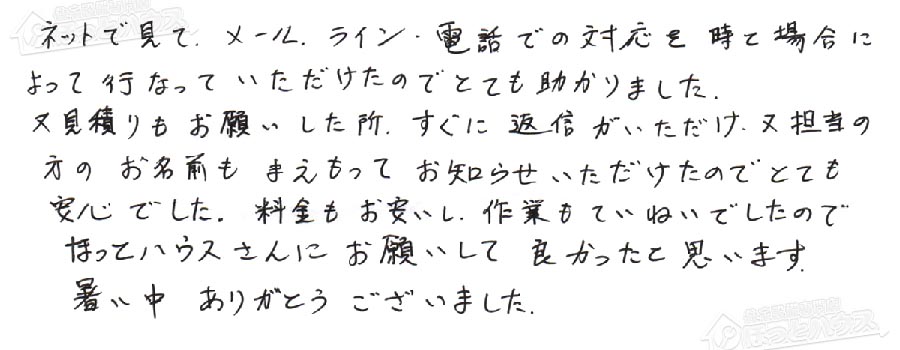 ネットで見て、メール、ライン・電話での対応を時と場合に
よって行なっていただけたのでとても助かりました。
又見積りもお願いした所、すぐに返信がいただけ、又担当の
方のお名前もまえもってお知らせいただけたのでとても
安心でした。料金もお安いし、作業もていねいでしたので
ほっとハウスさんにお願いして良かったと思います。
暑い中 ありがとうございました。
ほっとハウス